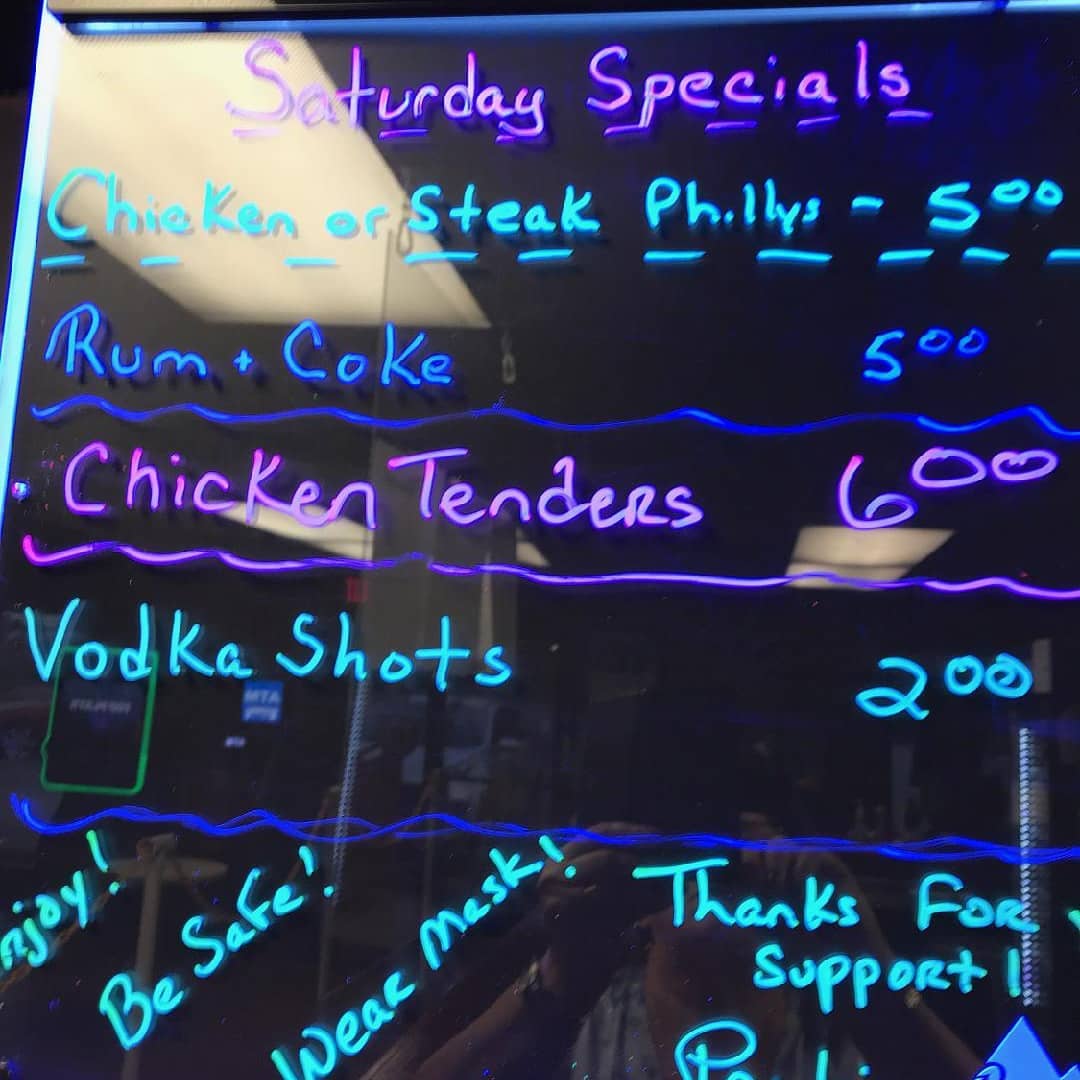 Saturday Specials
Chicken or Steak Phillys - 5.00
Rum + Coke 5.00
Chicken Tenders 6.00
Vodka Shots 2.00
MTA
njoy!
Be Safe!
Wear Mask!
Thanks For
Support!